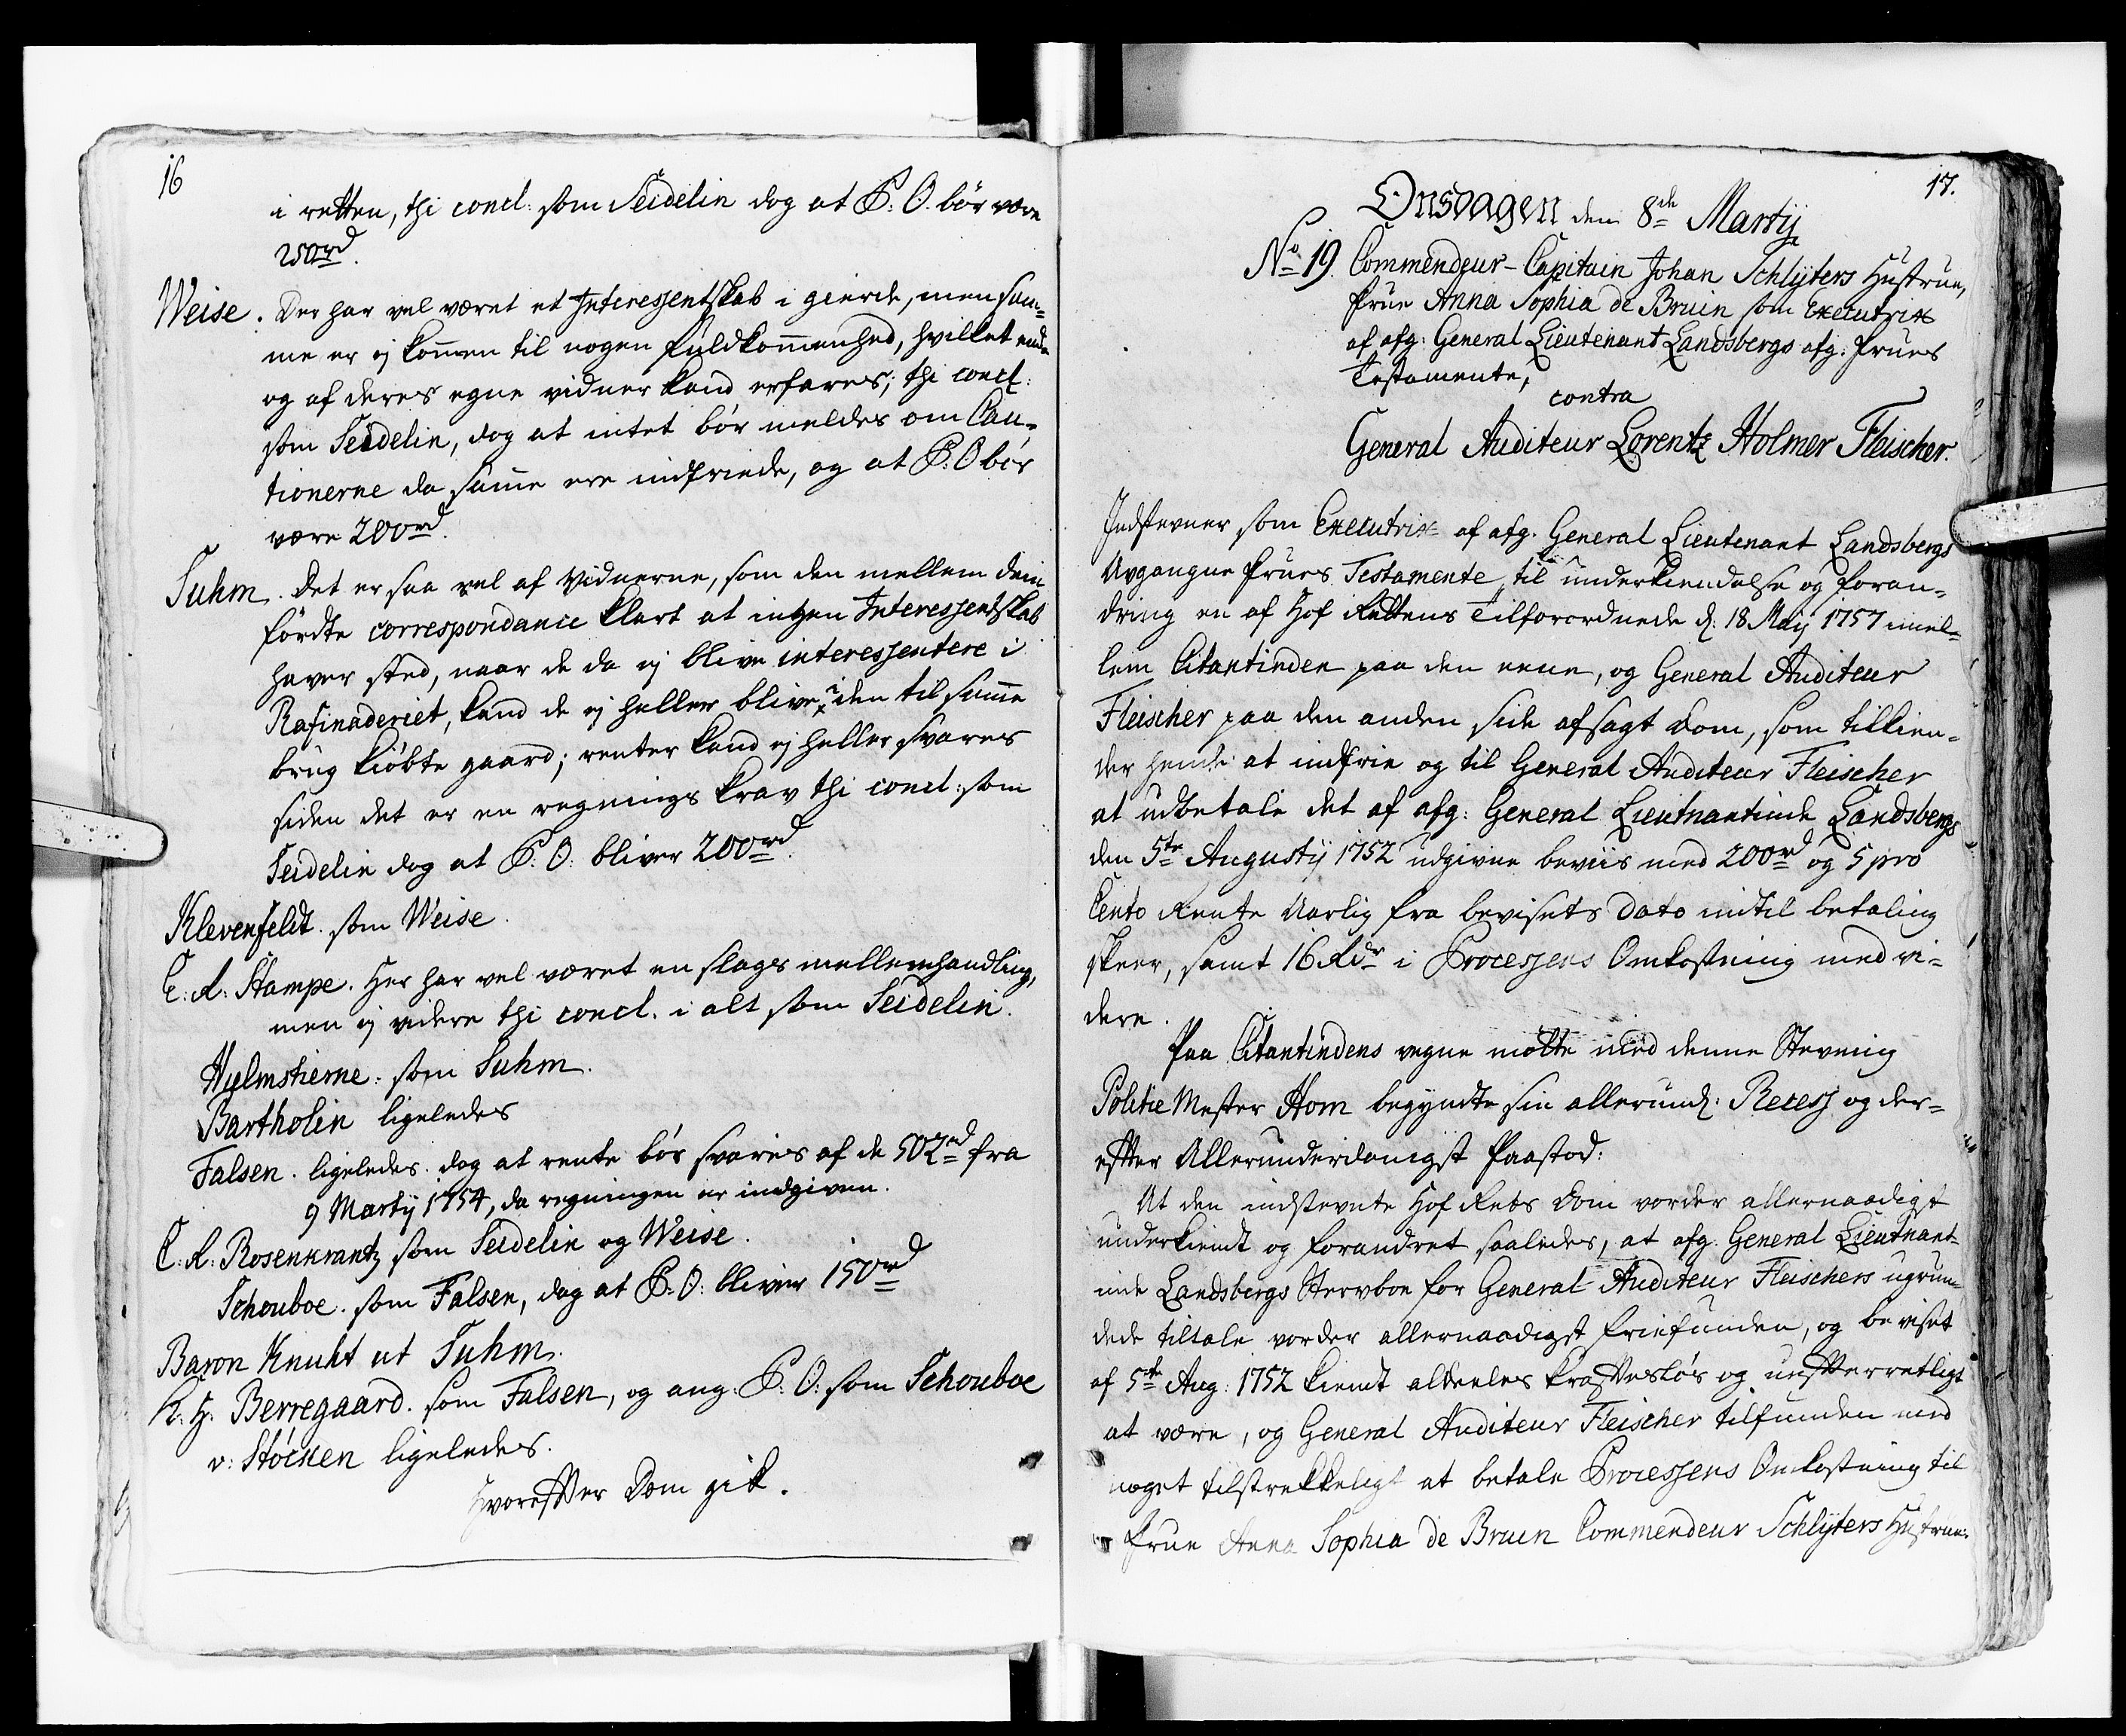 16
i retten, thi concl: som Seidelin dog at P: O. bør være
250rd.
Weise. Der har vel været et Interessentskab i gierde, men sam=
me er ej kommen til nogen fuldkommenhed, hvilket end
og af deres egne vidner kand erfares; thi concl:
som Seidelin, dog at intet bør meldes om Cau=
tionerne da samme ere indfriede, og at P: O bør
være 200rd.
Suhm. Det er saa vel af Vidnerne, som den mellem dem
førdte correspondance klart at ingen Interessentskab
haver sted, naar de da ej blive interessentere i
Rafinaderiet, kand de ej heller blive i den til samme
brug kiøbte gaard; renter kand ej heller svares
siden det er en regnings krav thi concl: som
Seidelin dog at P: O: bliver 200rd.
Klevenfeldt. som Weise.
E: R: Stampe. Her har vel været en slags mellemhandling,
men ej videre thi concl. i alt som Seidelin.
Hielmstierne: som Suhm.
Bartholin ligeledes
Falsen. ligeledes. dog at rente bør svares af de 502rd fra
9 Martij 1754, da regningen er indgiven.
E: R: Rosenkrantz som Seidelin og Weise.
Schouboe. som Falsen, dog at P: O: bliver 150rd
Baron Knuht ut Suhm.
K: H: Berregaard. som Falsen, og ang: P: O: som Schouboe
v: Støcken ligeledes.
Hvoreffter Dom gik.
17.
Onsdagen den 8de Martij
No 19. Commendeur-Capitain Johan Schlÿters Hustrue,
Frue Anna Sophia de Bruin som Executrix
af afg: General Lieutenant Landsbergs afg: Frues
Testamente,
contra
General Auditeur Lorentz Holmer Fleischer.
Indstevner som Executrix af afg. General Lieutenant Landsbergs
Avgangne Frues Testamente, til underkiendelse og foran=
dring en af Hof Rettens Tilforordnede d: 18 Maij 1757 imel=
lem Citantinden paa den eene, og General Auditeur
Fleischer paa den anden side afsagt Dom, som tilkien=
der hende at indfrie og til General Auditeur Fleischer
at udbetale det af afg: General Lieutnantinde Landsbergs
den 5te Augustij 1752 udgivne beviis med 200rd og 5 pro
Cento Rente Aarlig fra bevisets Dato indtil betaling
skeer, samt 16 Rdr i Processens Omkostning med vi=
dere.
Paa Citantindens vegne mötte med denne Stevning
Politie Mester Horn begyndte sin allerund: Recess og der=
effter Allerunderdanigst Paastod:
At den indstevnte Hof Rets Dom vorder allernaadigst
underkiendt og forandret saaledes, at afg. General Lieutnant=
inde Landsbergs Stervboe for General Auditeur Fleischers ugrun=
dede tiltale vorder allernaadigst friefunden, og beviset
af 5te Aug: 1752 kiendt aldeeles krafftesløs og uefterretligt
at være, og General Auditeur Fleischer tilfunden med
noget tilstrekkeligt at betale Processens Omkostning til
Frue Anna Sophia de Bruin Commendeur Schlÿters Hustrue.